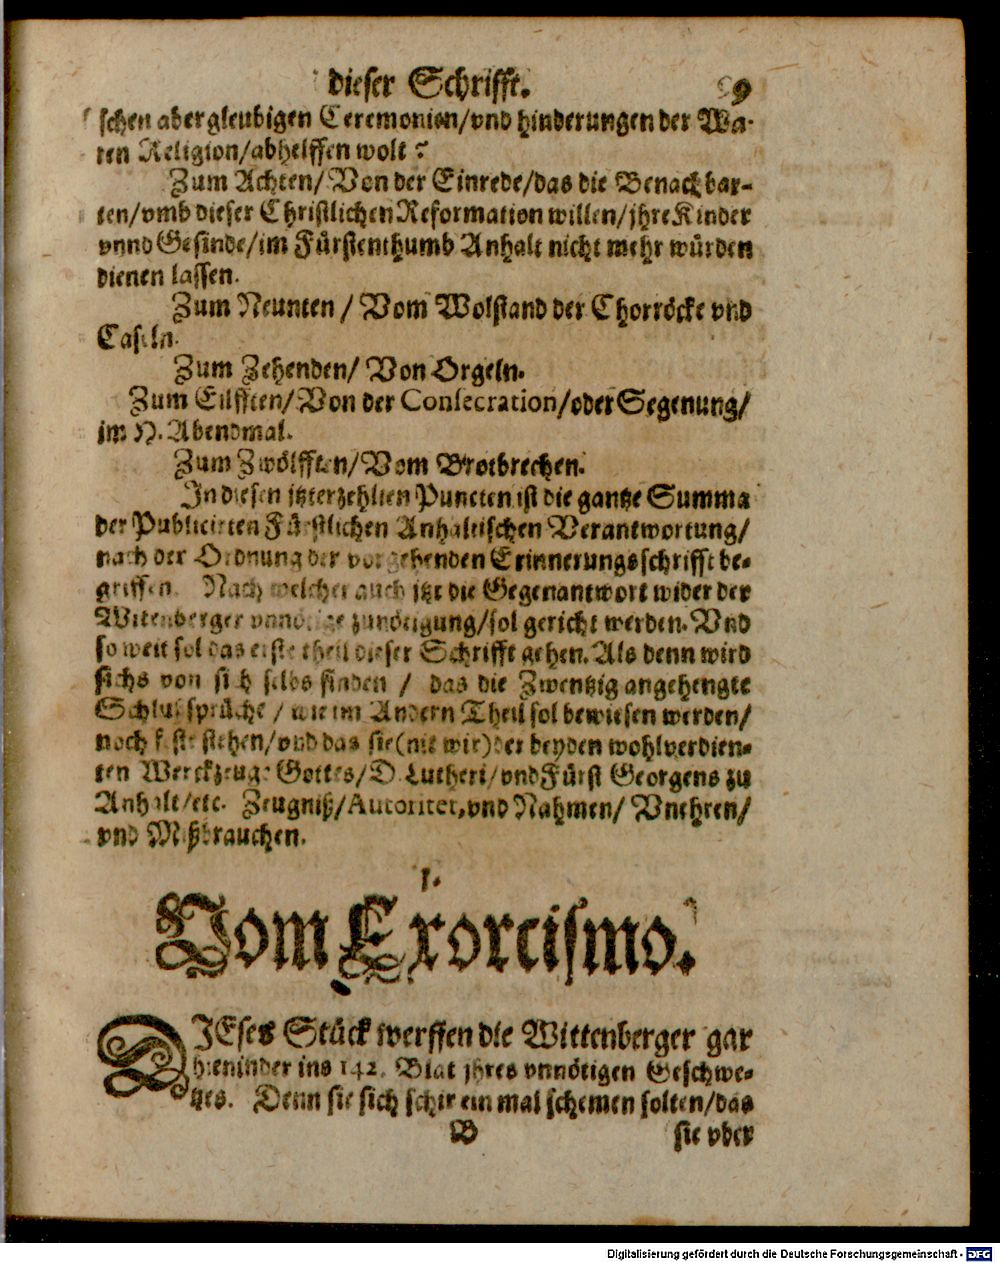 dieser Schrifft. 9
schen abergleubigen Ceremonien/vnd hinderungen der Wa-
ren Religion/abhelffen wolt?
Zum Achten/ Von der Einrede/das die Benachbar-
ten/vmb dieser Christlichen Reformation willen/jhre Kinder
vnnd Gesinde/im Fürstenthumb Anhalt nicht mehr würden
dienen lassen.
Zum Neunten / Vom Wolstand der Chorröcke vnd
Caseln.
Zum Zehenden/ Von Orgeln.
Zum Eilfften/Von der Consecration/oder Segenung/
im H. Abendmal.
Zum Zwölfften/Vom Brotbrechen.
In diesen jtzterzehlten Puncten ist die gantze Summa
der Publicirten Fürstlichen Anhaltischen Verantwortung/
nach der Ordnung der vorgehenden Erinnerungsschrifft be-
griffen. Nach welcher auch jtzt die Gegenantwort wider der
Witenberger vnnötige zunötigung/sol gericht werden. Vnd
so weit sol das erste theil dieser Schrifft gehen. Als denn wird
sichs von sich selbs finden / das die Zwentzig angehengte
Schlußsprüche / wie im Andern Theil sol bewiesen werden/
noch fest stehen/vnd das sie (nit wir) der beyden wohlverdien-
ten Werckzeuge Gottes/D. Lutheri/vnd Fürst Georgens zu
Anhalt/etc. Zeugniß/Autoritet, vnd Nahmen/ Vnehren/
vnd Mißbrauchen.
I.
Vom Exorcismo.
DIEses Stück werffen die Wittenberger gar
hieninder ins 142. Blat jhres vnnötigen Geschwe-
tzes. Denn sie sich schir ein mal schemen solten/das
B sie vber
Digitalisierung gefördert durch die Deutsche Forschungsgemeinschaft - DFG